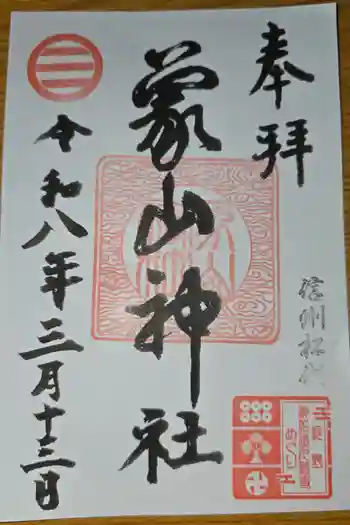 奉拝
信州松代
蒙山神社
令和八年三月十三日